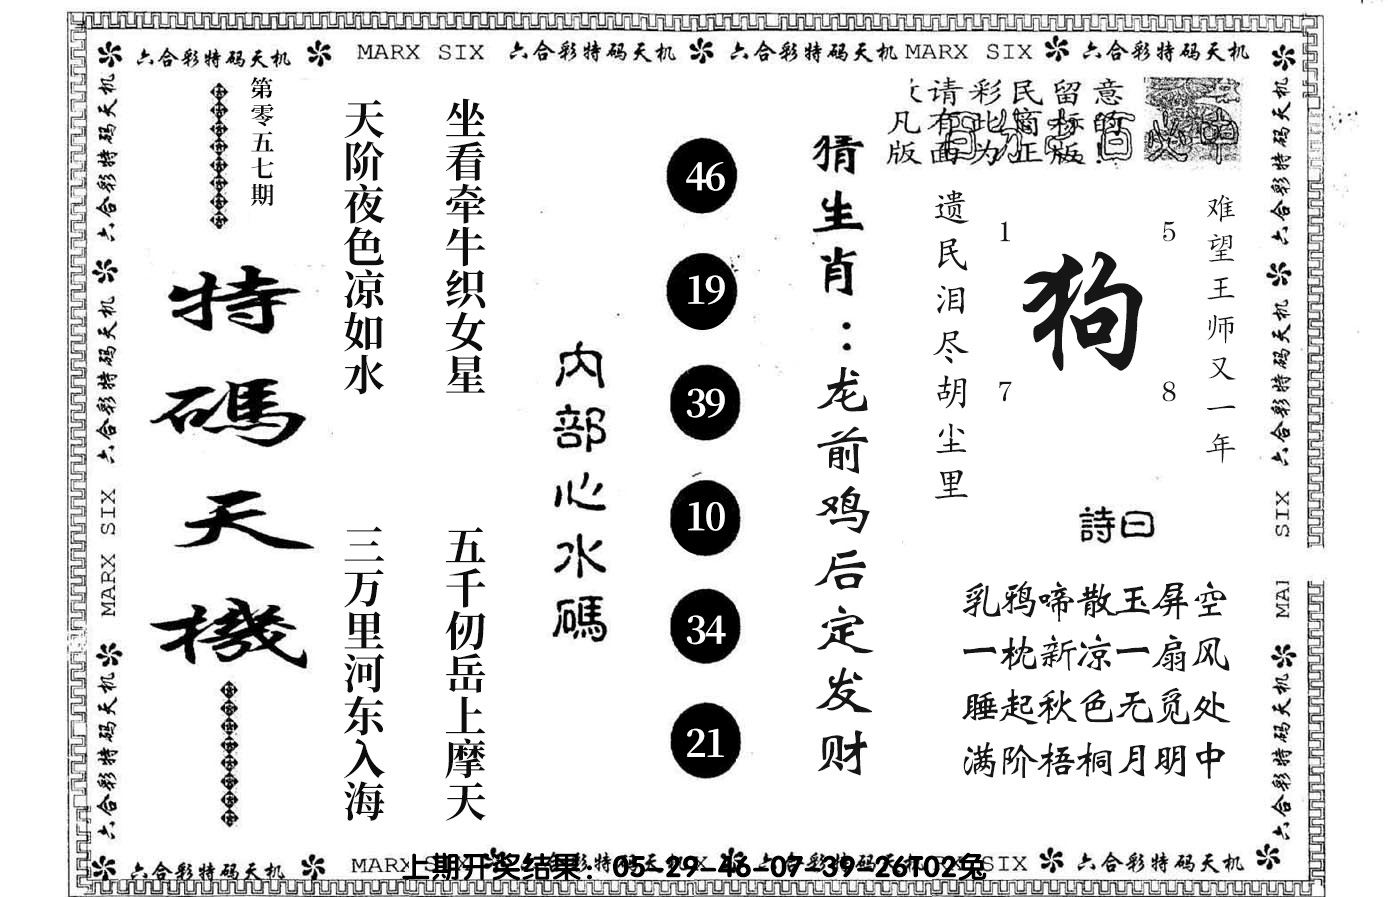 六合彩特码天机 MARX SIX 六合彩特码天机 六合彩特码天机 MARX SIX 六合彩特码天机
六合彩特码天机
六合彩特码天机
MARX SIX
六合彩特码天机
第零五七期
特碼天機
天阶夜色凉如水
三万里河东入海
坐看牵牛织女星
五千仞岳上摩天
内部心水碼
46
19
39
10
34
21
猜生肖：龙前鸡后定发财
请彩民留意
凡有此商标的
版面为正版！
遗民泪尽胡尘里
1
5
狗
7
8
难望王师又一年
詩曰
乳鸦啼散玉屏空
一枕新凉一扇风
睡起秋色无觅处
满阶梧桐月明中
六合彩特码天机
六合彩特码天机
SIX
六合彩特码天机
六合彩特码天机 MARX SIX 六合彩特码天机 六合彩特码天机 SIX 六合彩特码天机
上期开奖结果：05-29-46-07-39-26T02兔